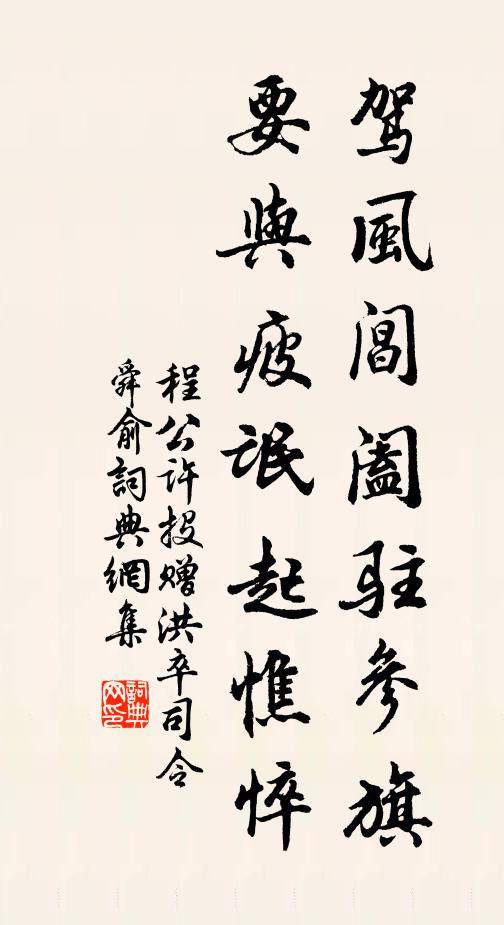 駕風閶闔駐參旗
要與疲氓起憔悴
程公許投贈洪卒司令
舜俞詞典網集
詞典網印